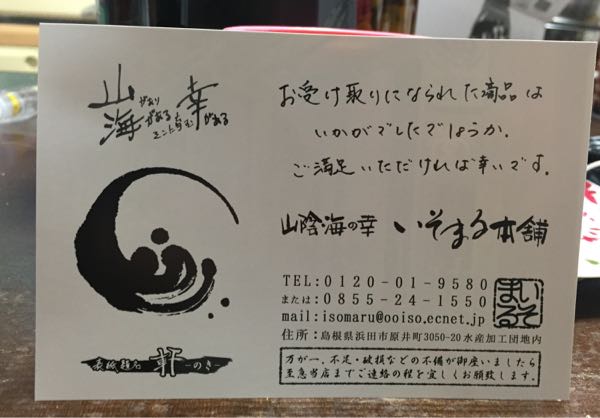 山があり
海がある
そこに育む
幸がある
お受け取りになられた商品は
いかがでしたでしょうか.
ご満足いただければ幸いです.
山陰海の幸 いそまる本舗
TEL:0120-01-9580
または:0855-24-1550
mail:isomaru@ooiso.ecnet.jp
住所:島根県浜田市原井町3050-20水産加工団地内
いそまる
万が一、不足・破損などの不備が御座いましたら
至急当店までご連絡の程を宜しくお願致します.
表紙題名 軒 -のき-